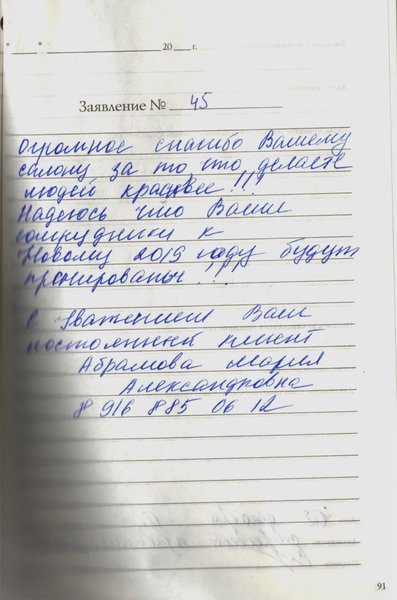 " " 20 г.
Заявление № 45
Огромное спасибо Вашему
салону за то, что делаете
людей красивее!!!
Надеюсь что Ваши
сотрудники к
Новому 2019 году будут
премированы!!!
С Уважением Ваш
постоянный клиент
Абрамова Мария
Александровна
8 916 885 06 12
91